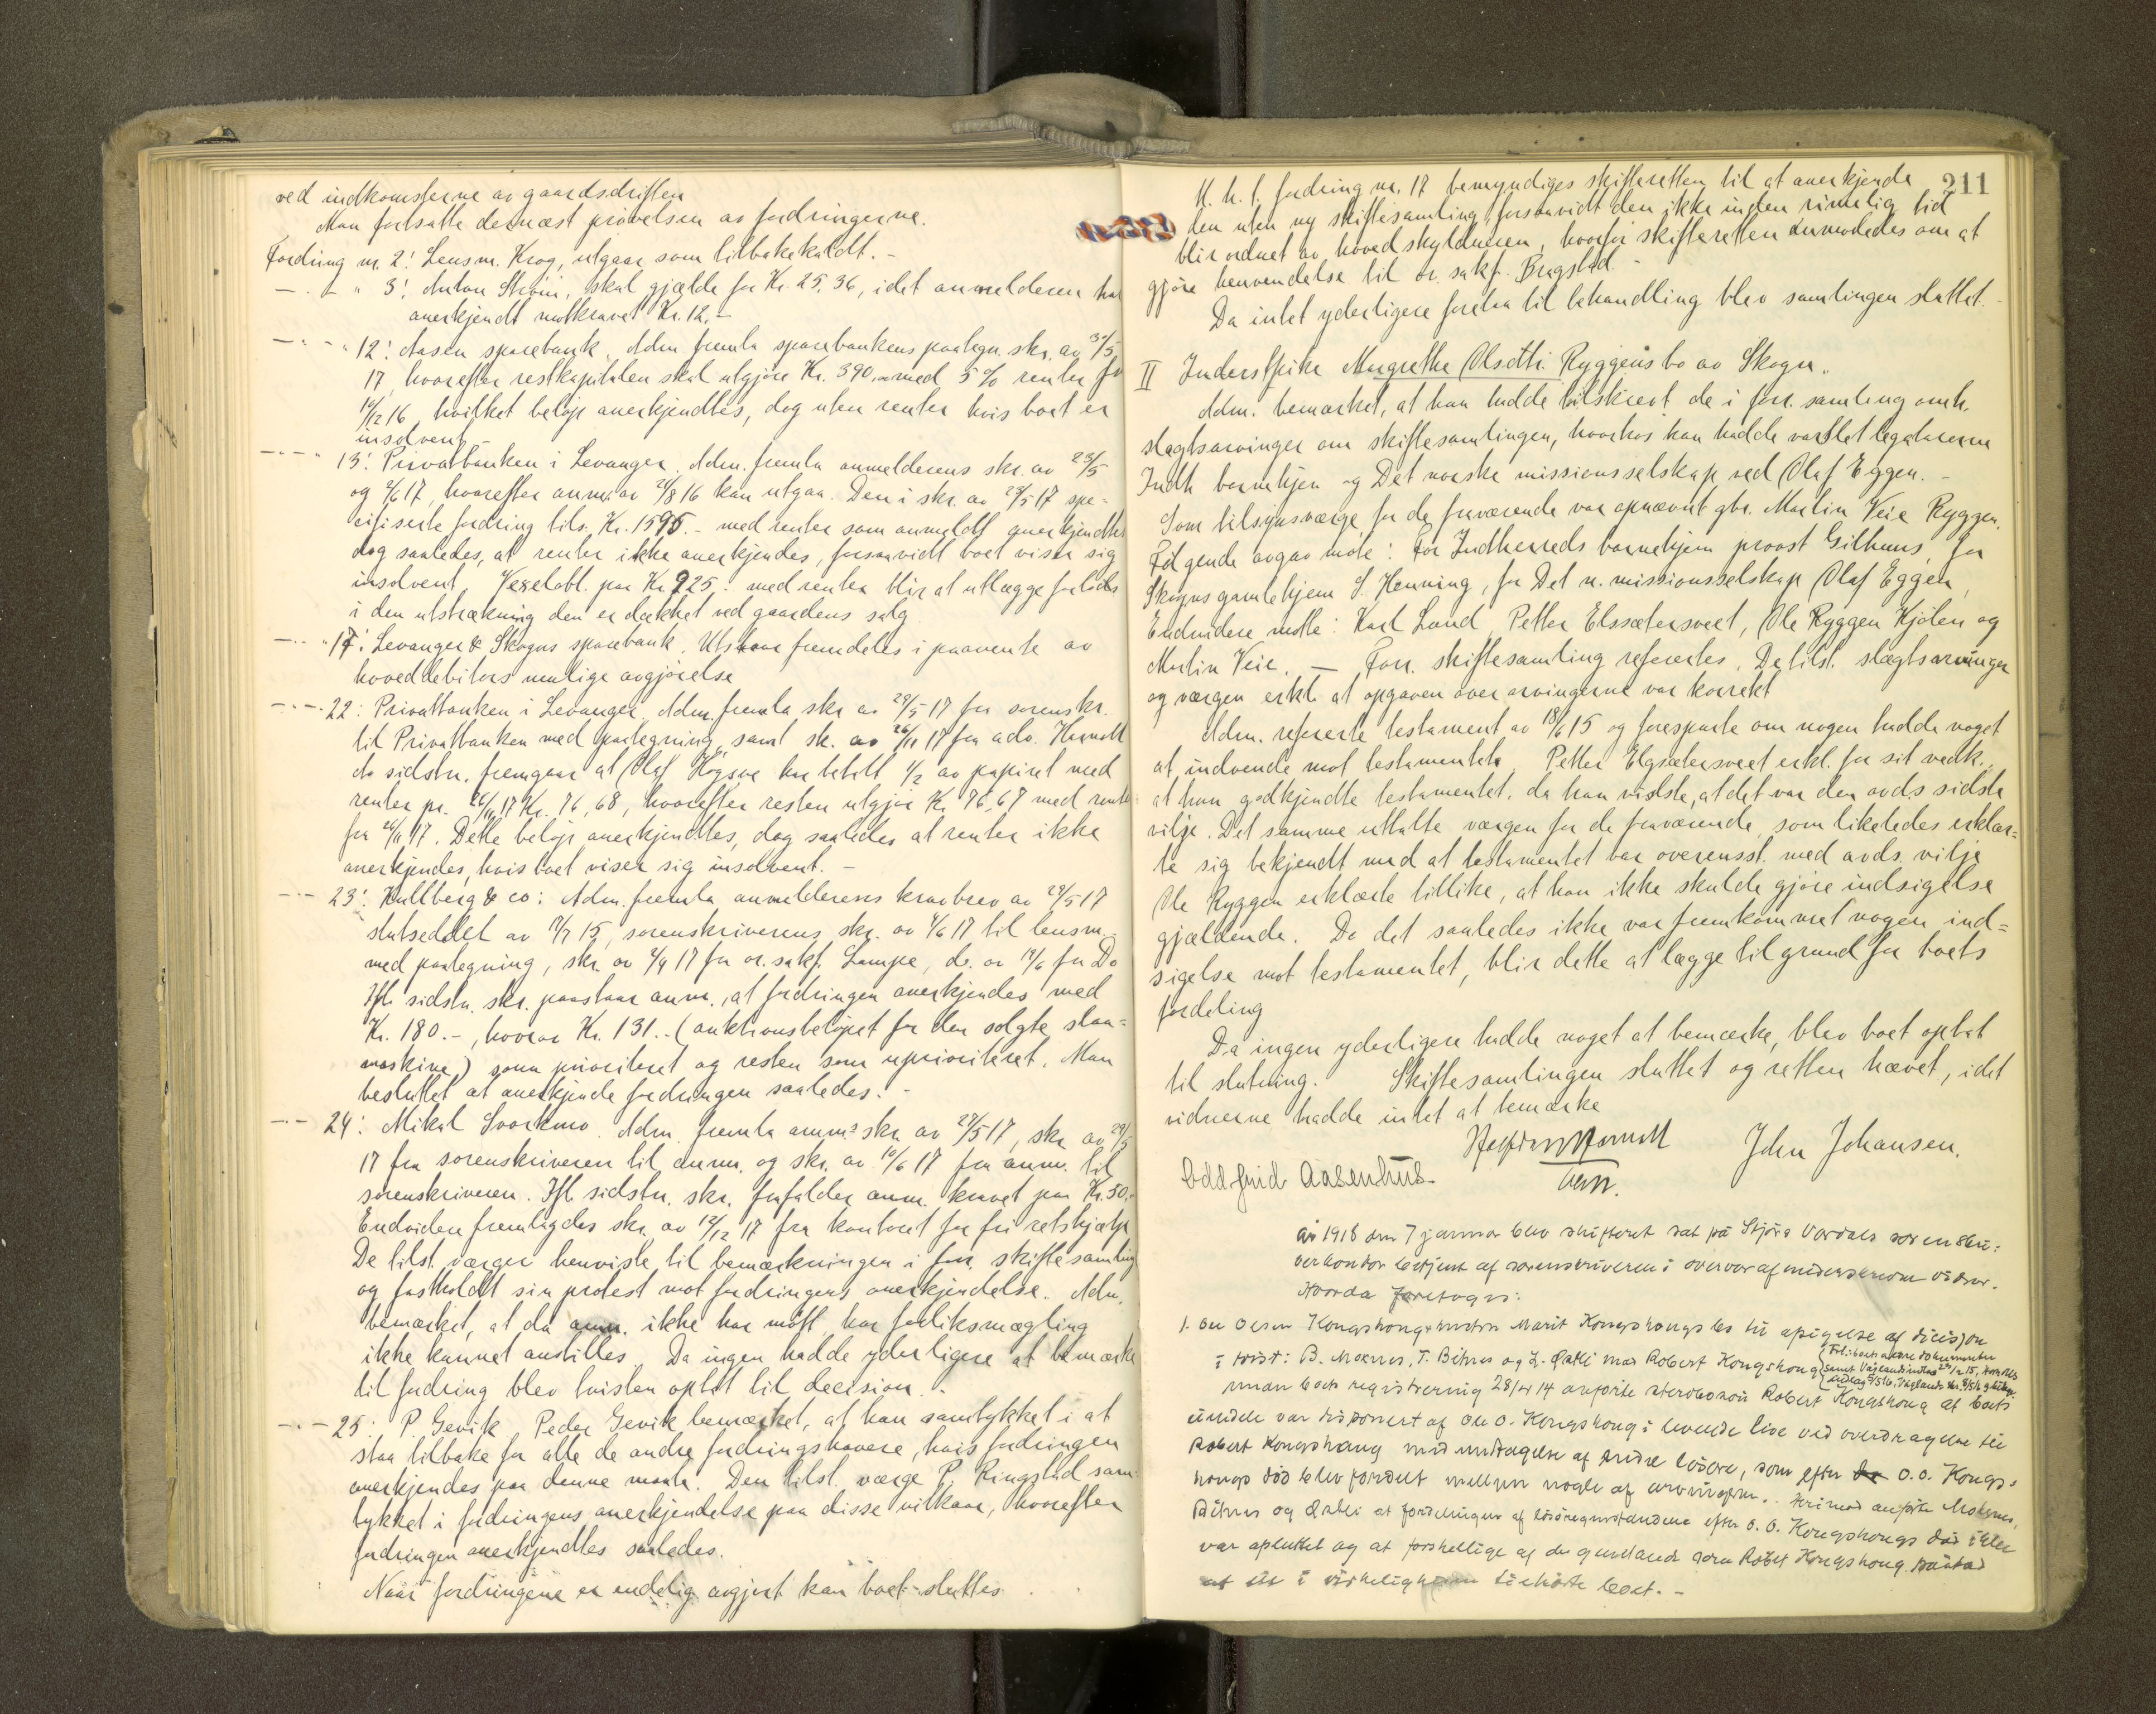 ved indkomsterne av gaardsdriften
Man fortsatte dernæst prøvelsen av fordringerne.
Fordring nr. 2: Lensm. Krog, utgaar som tilbakekaldt. -
- " - " 3: Anton Strøm, skal gjælde for Kr. 25,36, idet anmelderen har
anerkjendt motkravet Kr. 12.-
- " - " 12: Aasen sparebank. Adm. fremla sparebankens paategn. skr. av 30/5
17, hvorefter restkapitalen skal utgjøre Kr. 390.00 med 5 % renter fra
14/12 16, hvilket beløp anerkjendtes, dog uten renter hvis boet er
insolvent. -
- " - " 13: Privatbanken i Levanger. Adm. fremla anmelderens skr. av 23/5
og 2/6 17, hvorefter anm. av 21/8 16 kan utgaa. Den i skr. av 23/5 17 spe-
cifiserte fordring tils. Kr. 1595.- med renter som anmeldt anerkjendtes
dog saaledes, at renter ikke anerkjendes, forsaavidt boet viser sig
insolvent. Vexelobl. paa Kr. 925.- med renter blir at utlægge forlods
i den utstrækning den er dækket ved gaardens salg
- " - " 17: Levanger & Skogns sparebank. Utstaar fremdeles i paavente av
hoveddebitors mulige avgjørelse
- " - " 22: Privatbanken i Levanger, Adm. fremla skr. av 29/5 17 fra sorenskr.
til Privatbanken med paategning, samt sk. av 26/11 17 fra adv. Harnoll
da sidstn. fremgaar at Olaf Høgsve har betalt 1/2 av papiret med
renter pr. 26/11 17 Kr. 76,68, hvorefter resten utgjør Kr. 76,67 med renter
fra 26/11 17. Dette beløp anerkjendtes, dog saaledes at renter ikke
anerkjendes, hvis boet viser sig insolvent. -
- " - 23: Kullberg & co: Adm. fremla anmelderenes kravbrev av 29/5 17
slutseddel av 17/7 15, sorenskriverens skr. av 4/6 17 til lensm.
med paategning, skr. av 2/9 17 fra or. sakf. Lampe, do. av 14/6 fra Do
Ifl. sidstn. skr. paastaar anm., at fordringen anerkjendes med
Kr. 180.-, hvorav Kr. 131.- (auktionsbeløpet for den solgte slaa-
maskine) som prioritert og resten som uprioriteret. Man
besluttet at anerkjende fordringen saaledes. -
- " - 24: Mikal Svorkmo. Adm. fremla anm.s skr. av 27/5 17, skr. av 29/5
17 fra sorenskriveren til anm. og skr. av 10/6 17 fra anm. til
sorenskriveren. Ifl. sidstn. skr. frafalder anm. kravet paa Kr. 50.-
Endvidere fremlagdes skr. av 12/12 17 fra kontoret for fri retshjælp
De tilst. værger henviste til bemærkningen i forr. skiftesamling
og fastholdt sin protest mot fordringens anerkjendelse. Adm.
bemærket, at da anm. ikke har møtt, har forliksmægling
ikke kunnet anstilles. Da ingen hadde yderligere at bemærke
til fordring blev tvisten optat til decision. -
- " - 25: P. Gevik. Peder Gevik bemærket, at han samtykket i at
staa tilbake for alle de andre fordringshavere, hvis fordringen
anerkjendes paa denne maate. Den tilst. værge P. Ringstad sam-
tykket i fordringens anerkjendelse paa disse vilkaar, hvorefter
fordringen anerkjendtes saaledes.
Naar fordringene er endelig avgjort kan boet sluttes
211
M. h. t. fordring nr. 17 bemyndiges skifteretten til at anerkjende
den uten ny skiftesamling, forsaavidt den ikke inden rimelig tid
blir ordnet av hovedskyldneren, hvorfor skifteretten anmodedes om at
gjøre henvendelse til or. sakf. Bragstad. -
Da intet yderligere forelaa til behandling blev samlingen sluttet. -
II Inderstpike Margrethe Olsdtr. Ryggens bo av Skogn.
Adm. bemærket, at han hadde tilskrevt de i forr. samling omh.
slægtsarvinger om skiftesamlingen, hvorhos han hadde varslet legatarerne
Indh. barnehjem og Det norske missionsselskap ved Olaf Eggen. -
Som tilsynsværge for de fraværende var opnævnt gbr. Martin Veie Ryggen.
Følgende avgav møte: For Indherreds barnehjem provst Gilhuus, for
Skogns gamlehjem S. Henning, for Det n. missionsselskap Olaf Eggen,
Endvidere møtte: Karl Lund, Petter Elssætersveet, Ole Ryggen Kjølen og
Martin Veie. - Forr. skiftesamling refereres. De tilst. slægtsarvinger
og værgen erkl. at opgaven over arvingerne var korrekt
Adm. refererte testament av 18/6 15 og forespurte om nogen hadde noget
at indvende mot testamentet. Petter Elgsætersveet erkl. for sit vedk.,
at han godkjendte testamentet, da han visste, at det var den avds sidste
vilje. Det samme uttalte værgen for de fraværende, som likeledes erklær-
te sig bekjendt med at testamentet var overensst. med avds. vilje
Ole Ryggen erklærte tillike, at han ikke skulde gjøre indsigelse
gjældende. Da det saaledes ikke var fremkommet nogen ind-
sigelse mot testamentet, blir dette at lægge til grund for boets
fordeling
Da ingen yderligere hadde noget at bemærke, blev boet optat
til slutning. Skiftesamlingen sluttet og retten hævet, idet
vidnerne hadde intet at bemærke
John Johansen.
Oddfrid Aasenhus.
år 1918 den 7 januar blev skifteret sat på Stjør & Værdals sorenskri-
verkontor betjent af sorenskriveren i overvær af underskrevne vidner.
Hvorda foretoges:
1. Ole Olsen Kongshaug & hustru Marit Kongshaugs bo til afsigelse af decisjon
i tvist: B. Moknes, T. Bitnes og L. Dalli mod Robert Kongshaug
under boets registrering 28/4 14 anførte Robert Kongshaug at boets
eiendele var disponert af Ole O. Kongshaug i levende live ved overdragelse til
Robert Kongshaug med undtagelse af endel løsøre, som efter O.O. Kongs-
haugs død blev fordelt mellem nogle af arvingerne. Herimod anførte Moknes,
Bitnes og Dalli at fordelingen af løsøregjenstandene efter O. O. Kongshaugs død ikke
var afsluttet og at forskellige af de gjenstande som Robert Kongshaug påstod
at eie i virkeligheten tilhørte boet. -